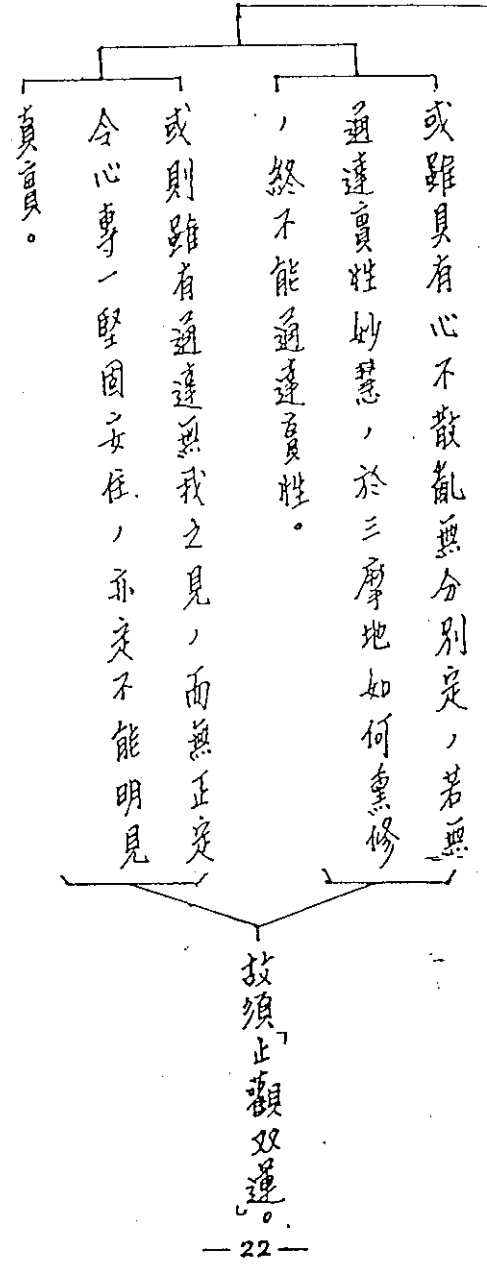 或雖具有心不散亂無分別定，若無
通達實性妙慧，於三摩地如何熏修
，終不能通達實性。
或則雖有通達無我之見，而無正定
令心專一堅固安住，亦定不能明見
真實。
故須「止觀双運」。
— 22 —